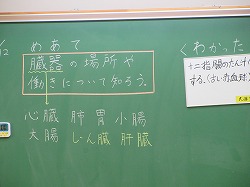 めあて
臓器の場所や
働きについて知ろう。
心臓 肺 胃 小腸
大腸 じん臓 肝臓
<わかった
十二指腸の
する。